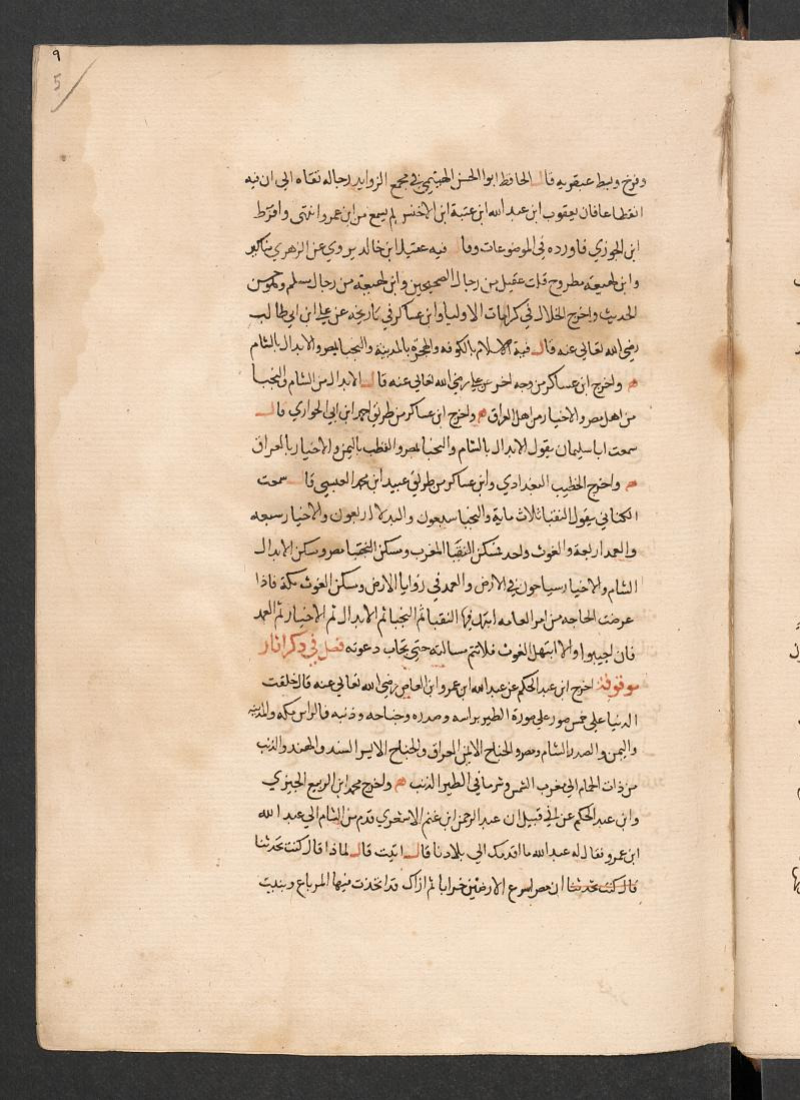 ٩
وفرخ وبسط عبقريه قال الحافظ ابوا الحسن الهيثمي في مجمع الزوايد رجاله ثقاه الى ان فيه
انقطاعا فان يعقوب ابن عبد الله ابن عتبة ابن الاخنس لم يسمع من ابن عمر وانتهى وافرط
ابن الجوزي فاورده في الموضوعات وقال فيه عقيل ابن خالد يروي عن الزهري مناكير
وابن لهيعه مطروح قلت عقيل من رجال الصحيحين وابن لهيعه من رجال مسلم وهو حسن
الحديث واخرج الخلال في كرامات الاوليا وابن عساكر في تاريخه عن علي ابن ابي طالب
رضي الله تعالى عنه قال قبة الاسلام بالكوفه والهجرة بالمدينة والنجبا بمصر والابدال بالشام
ه واخرج ابن عساكر من وجه اخر عن علي رضي الله تعالى عنه قال الابدال من الشام والنجبا
من اهل مصر والاخيار من اهل العراق ه واخرج ابن عساكر من طريق احمد ابن ابي الحواري قال
سمعت ابا سليمان يقول الابدال بالشام والنجبا بمصر والقطب باليمن والاخيار بالعراق
ه واخرج الخطيب البغدادي وابن عساكر من طريق عبيد ابن محمد العبسي قال سمعت
الكناني يقول النقبا ثلاث ماية والنجبا سبعون والبدلا اربعون والاخيار سبعه
والعمد اربعة والغوث واحد فمسكن النقبا المغرب ومسكن النجبا مصر ومسكن الابدال
الشام والاخيار سياحون في الارض والعمد في زوايا الارض ومسكن الغوث مكة فاذا
عرضت الحاجه من امر العامه ابتهل فيها النقبا ثم النجبا ثم الابدال ثم الاخيار ثم العمد
فان اجيبوا والا ابتهل الغوث فلا تتم مسالته حتى يجاب دعوته فصل في ذكر اثار
موقوفة اخرج ابن عبد الحكم عن عبد الله ابن عمرو ابن العاص رضي الله تعالى عنه قال خلقت
الدنيا على خمس صور على صورة الطير براسه وصدره وجناحه وذنبه فالراس مكه والمدينه
واليمن والصدر الشام ومصر والجناح الايمن العراق والجناح الايسر السند والهند والذنب
من ذات الحمام الى مغرب الشمس وشر ما في الطير الذنب ه واخرج محمد ابن الربيع الجيزي
وابن عبد الحكم عن ابي قبيل ان عبد الرحمن ابن غنم الاشعري قدم من الشام الى عبد الله
ابن عمرو فقال له عبد الله ما اقدمك الى بلادنا قال انت قال لماذا قال كنت تحدثنا
قال كنت تحدثنا ان مصر اسرع الارضين خرابا ثم اراك قد اتخذت فيها المرباع وبنيت